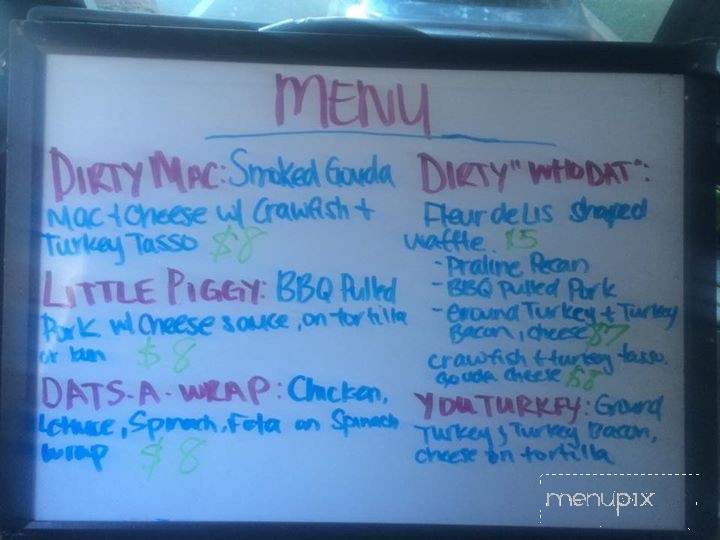 MENU
DIRTY MAC: Smoked Gouda
Mac + Cheese w/ Crawfish +
Turkey Tasso $8
LITTLE PIGGY: BBQ Pulled
Pork w/ Cheese sauce, on tortilla
or bun $8
DATS-A-WRAP: Chicken,
Lettuce, Spinach, Feta on Spinach
Wrap $8
DIRTY "WHO DAT":
Fleur de Lis shaped
waffle. $5
- Praline Pecan
- BBQ Pulled Pork
- Ground Turkey + Turkey
Bacon, cheese $7
crawfish + turkey tasso.
gouda cheese $8
YOU TURKEY: Ground
Turkey, Turkey Bacon,
cheese on tortilla
menupix